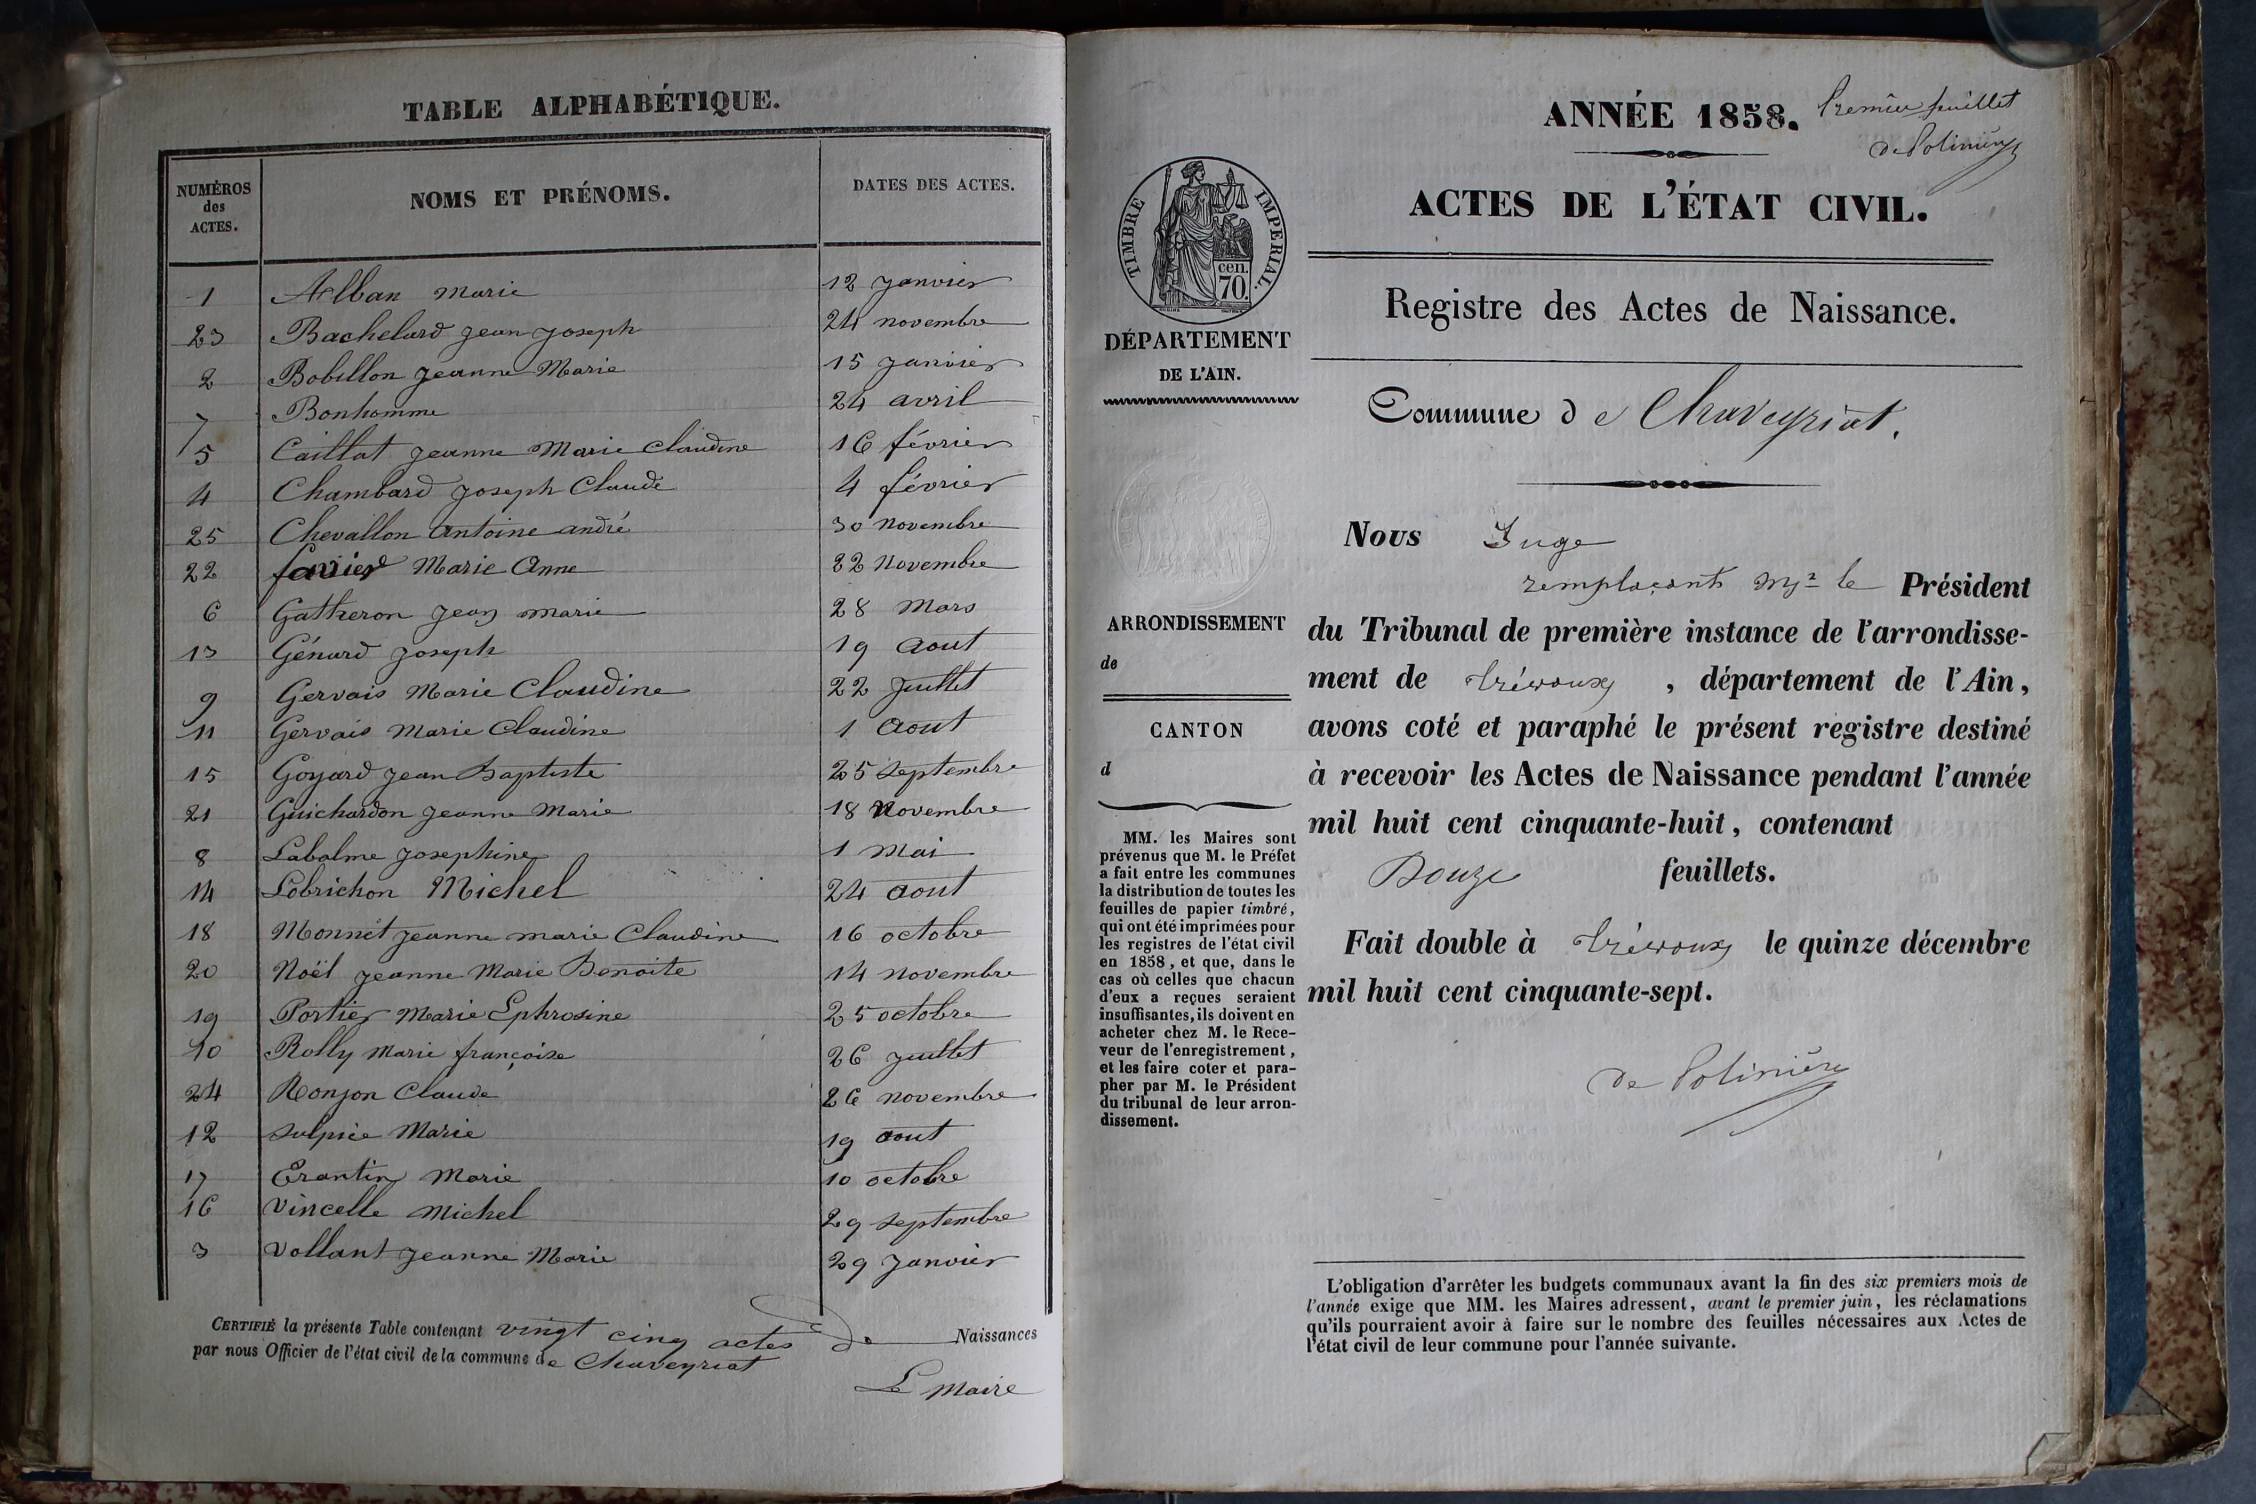 TABLE ALPHABÉTIQUE.
NUMÉROS
des
ACTES.
NOMS ET PRÉNOMS.
DATES DES ACTES.
1 Alban Marie 12 janvier
23 Bachelard jean joseph 24 novembre
2 Bobillon jeanne Marie 15 janvier
7 Bonhomme 24 avril
5 Caillat jeanne Marie claudine 16 février
4 Chambard joseph Claude 4 février
25 Chevallon Antoine andré 30 novembre
22 favier Marie Anne 22 Novembre
6 Gatheron jean marie 28 Mars
13 Génard joseph 19 aout
9 Gervais Marie Claudine 22 juillet
11 Gervais Marie Claudine 1 aout
15 Goyard jean Baptiste 25 septembre
21 Guichardon jeanne Marie 18 Novembre
8 Labalme josephine 1 Mai
14 Lobrichon Michel 24 aout
18 Monnet jeanne marie Claudine 16 octobre
20 Noël jeanne Marie Benoite 14 novembre
19 Portier Marie Ephrosine 25 octobre
10 Rolly Marie françoise 26 juillet
24 Ronjon Claude 26 novembre
12 Sulpice Marie 19 aout
17 Erantin Marie 10 octobre
16 Vincelle Michel 29 septembre
3 Vollant jeanne Marie 29 janvier
CERTIFIÉ la présente Table contenant vingt cinq actes de Naissances
par nous Officier de l'état civil de la commune de Chaveyriat
Le Maire
ANNÉE 1858. Premier feuillet
de Polinière
ACTES DE L'ÉTAT CIVIL.
TIMBRE IMPERIAL.
cen.
70.
DÉPARTEMENT
DE L'AIN.
Registre des Actes de Naissance.
Commune de Chaveyriat.
ARRONDISSEMENT
de
CANTON
d
MM. les Maires sont
prévenus que M. le Préfet
a fait entre les communes
la distribution de toutes les
feuilles de papier timbré,
qui ont été imprimées pour
les registres de l'état civil
en 1858, et que, dans le
cas où celles que chacun
d'eux a reçues seraient
insuffisantes, ils doivent en
acheter chez M. le Rece-
veur de l'enregistrement,
et les faire coter et para-
pher par M. le Président
du tribunal de leur arron-
dissement.
Nous Juge
remplaçant Mr le Président
du Tribunal de première instance de l'arrondisse-
ment de Trévoux, département de l'Ain,
avons coté et paraphé le présent registre destiné
à recevoir les Actes de Naissance pendant l'année
mil huit cent cinquante-huit, contenant
Douze feuillets.
Fait double à Trévoux le quinze décembre
mil huit cent cinquante-sept.
de Polinière
L'obligation d'arrêter les budgets communaux avant la fin des six premiers mois de
l'année exige que MM. les Maires adressent, avant le premier juin, les réclamations
qu'ils pourraient avoir à faire sur le nombre des feuilles nécessaires aux Actes de
l'état civil de leur commune pour l'année suivante.